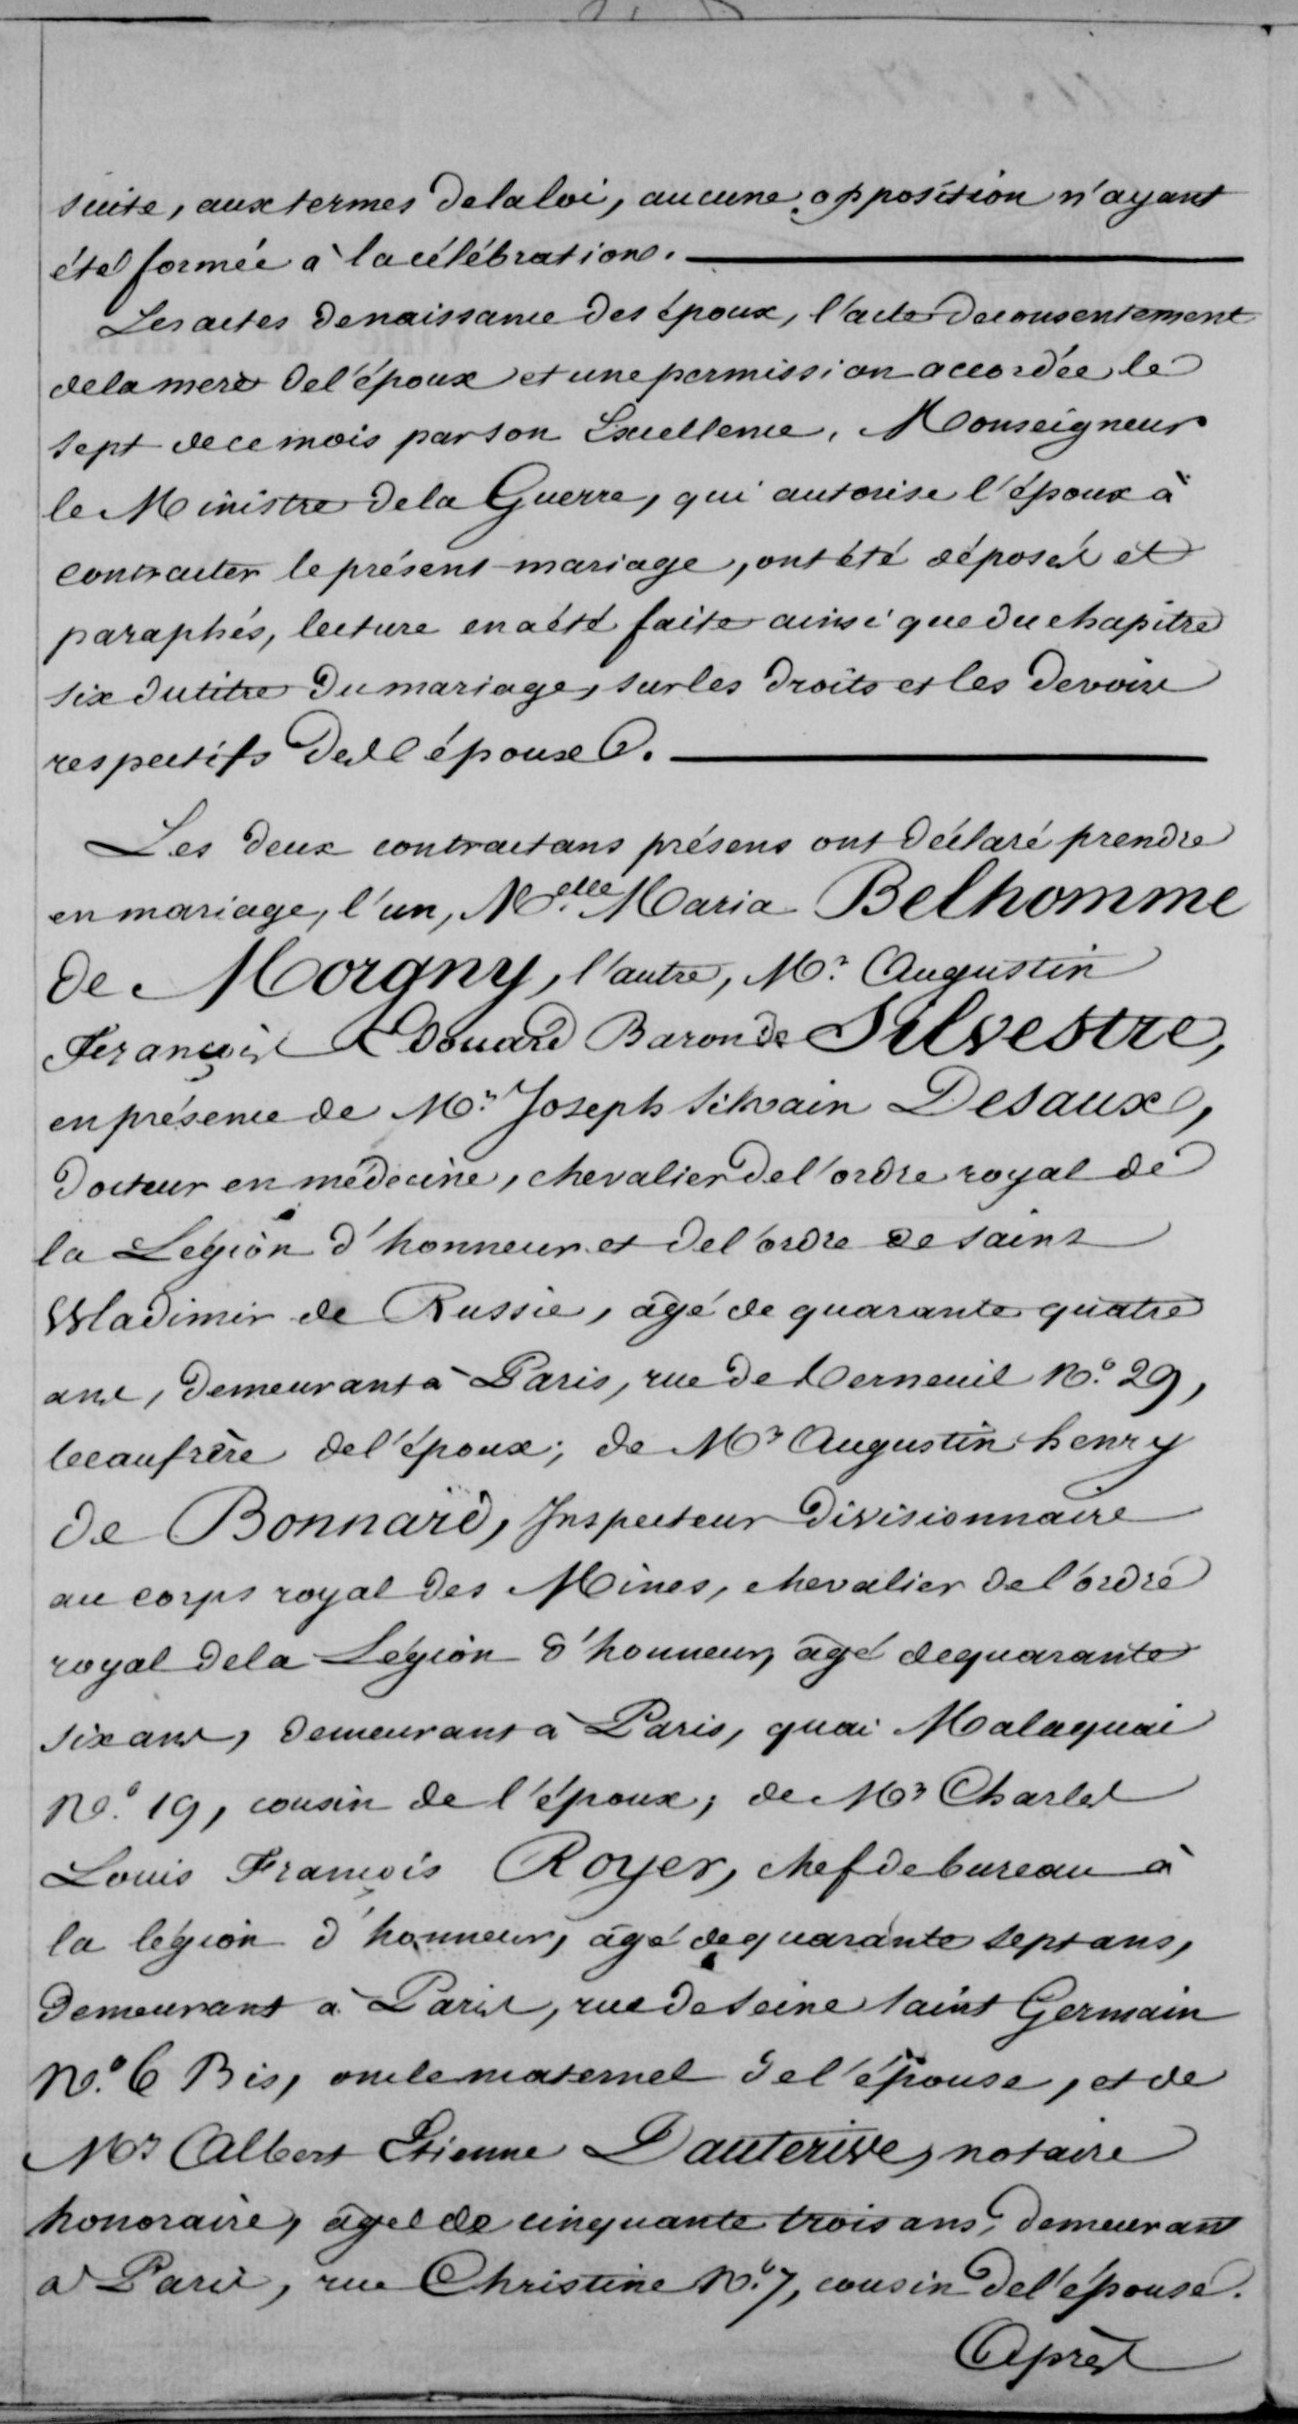 suite, aux termes de la loi, aucune opposition n'ayant
été formée à la célébration.
Les actes de naissance des époux, l'acte de consentement
de la mere de l'époux et une permission accordée le
sept de ce mois par son Excellence, Monseigneur
le Ministre de la Guerre, qui autorise l'époux à
contracter le présent mariage, ont été déposés et
paraphés, lecture en a été faite ainsi que du chapitre
six du titre du mariage, sur les droits et les devoirs
respectifs des épouse.
Les deux contractans présens ont déclaré prendre
en mariage, l'un, M.elle Maria Belhomme
de Morgny, l'autre, Mr. Augustin
François Edouard Baron de Silvestre,
en présence de Mr. Joseph Silvain Desaux,
docteur en médecine, chevalier de l'ordre royal de
la Légion d'honneur et de l'ordre de saint
Wladimir de Russie, âgé de quarante quatre
ans, demeurant à Paris, rue de Verneuil No. 29,
beaufrère de l'époux; de Mr Augustin henry
de Bonnard, Inspecteur divisionnaire
au corps royal des Mines, chevalier de l'ordre
royal de la Légion d'honneur, âgé de quarante
six ans, demeurant à Paris, quai Malaquai
No. 19, cousin de l'époux; de Mr Charles
Louis François Royer, chef de bureau à
la légion d'honneur, âgé de quarante sept ans,
demeurant à Paris, rue de Seine saint Germain
No. 6 Bis, oncle maternel de l'épouse, et de
Mr Albert Etienne Dauterive, notaire
honoraire, âgé de cinquante trois ans, demeurant
a Paris, rue Christine No. 7, cousin de l'épouse.
Après